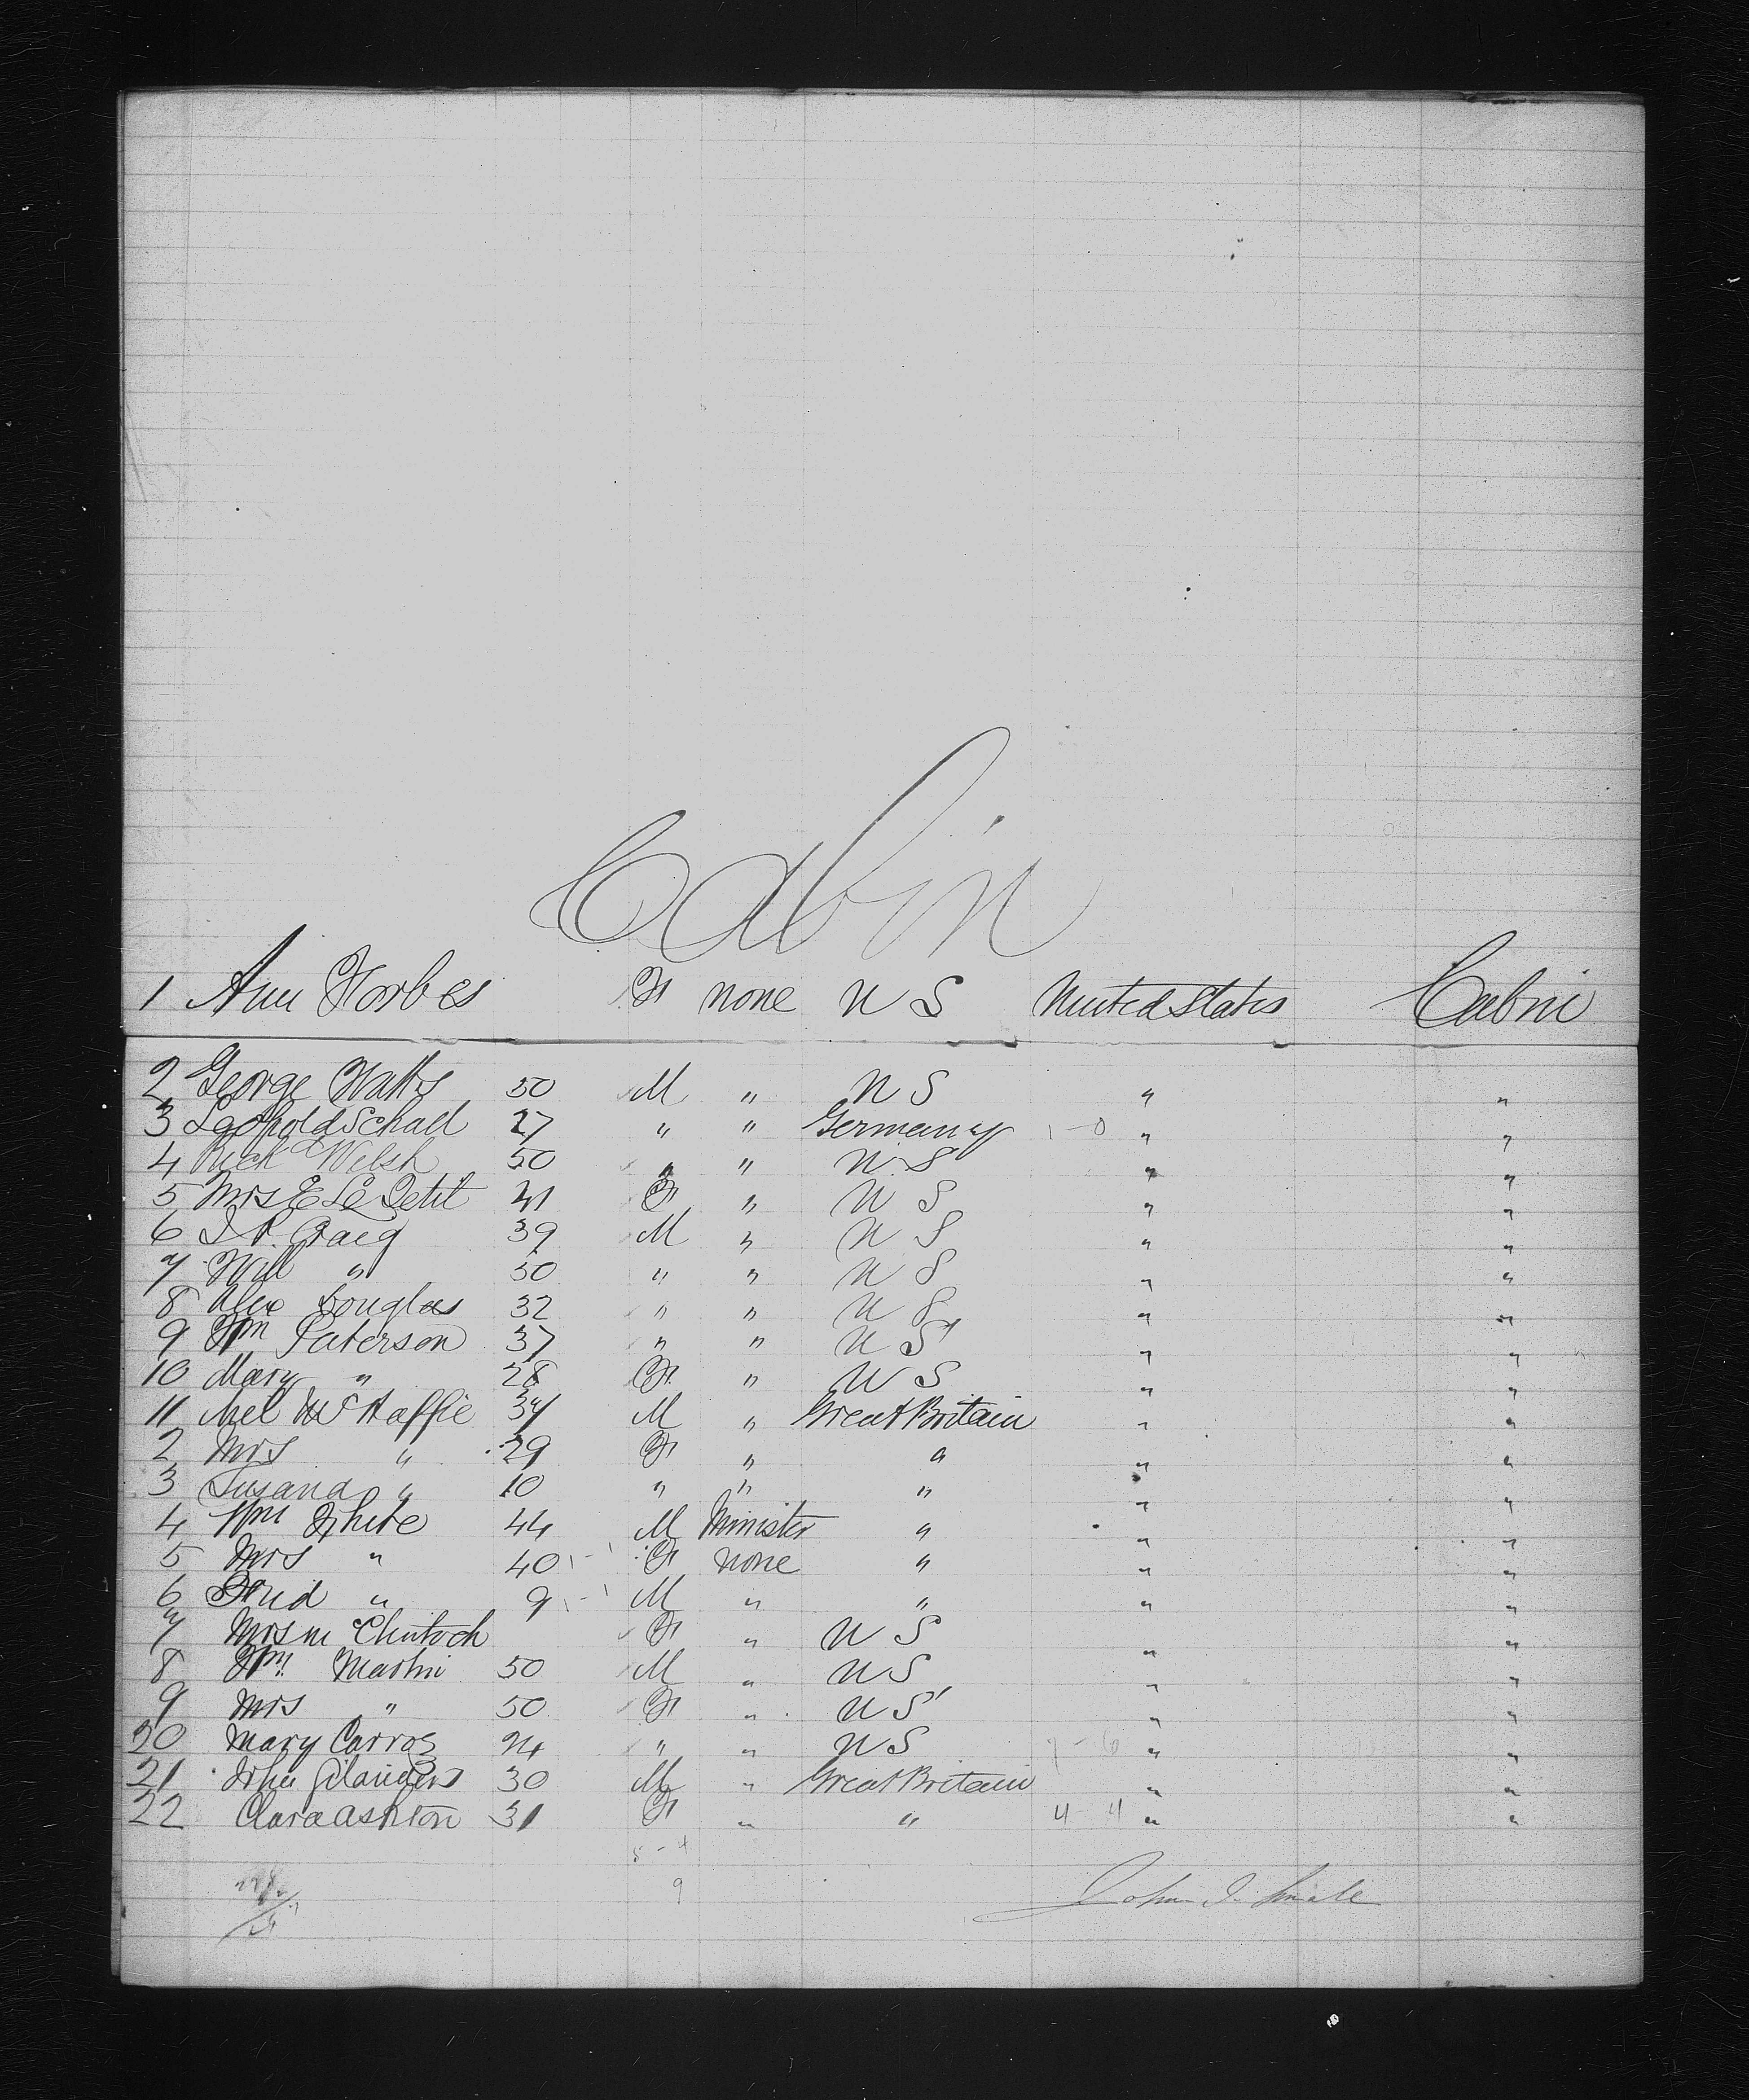 Cabin
1 Ann Forbes F none U S United States Cabin
2 George Watts 50 M " U S " "
3 Leopold Schall 27 " " Germany 1-0 " "
4 Rich Welsh 50 " " U S " "
5 Mrs E Le Petit 41 F " U S " "
6 J R Craig 39 M " U S " "
7 Will " 30 " " U S " "
8 Alex Douglas 32 " " U S " "
9 Wm Paterson 37 " " U S " "
10 Mary " 28 F " U S " "
11 McHaffie 34 M " Great Britain " "
2 Mrs " 29 F " " " "
3 Susana " 10 " " " " "
4 Wm White 44 M Minister " " "
5 Mrs " 40 F none " " "
6 " 9 M " " " "
7 Mrs McClintock F " U S " "
8 Wm Martin 50 M " U S " "
9 Mrs " 50 F " U S " "
20 Mary Carros 24 " " U S " "
21 John 30 M " Great Britain " "
22 Clara Ashton 31 F " " 4-4 " "
5-4
9 John